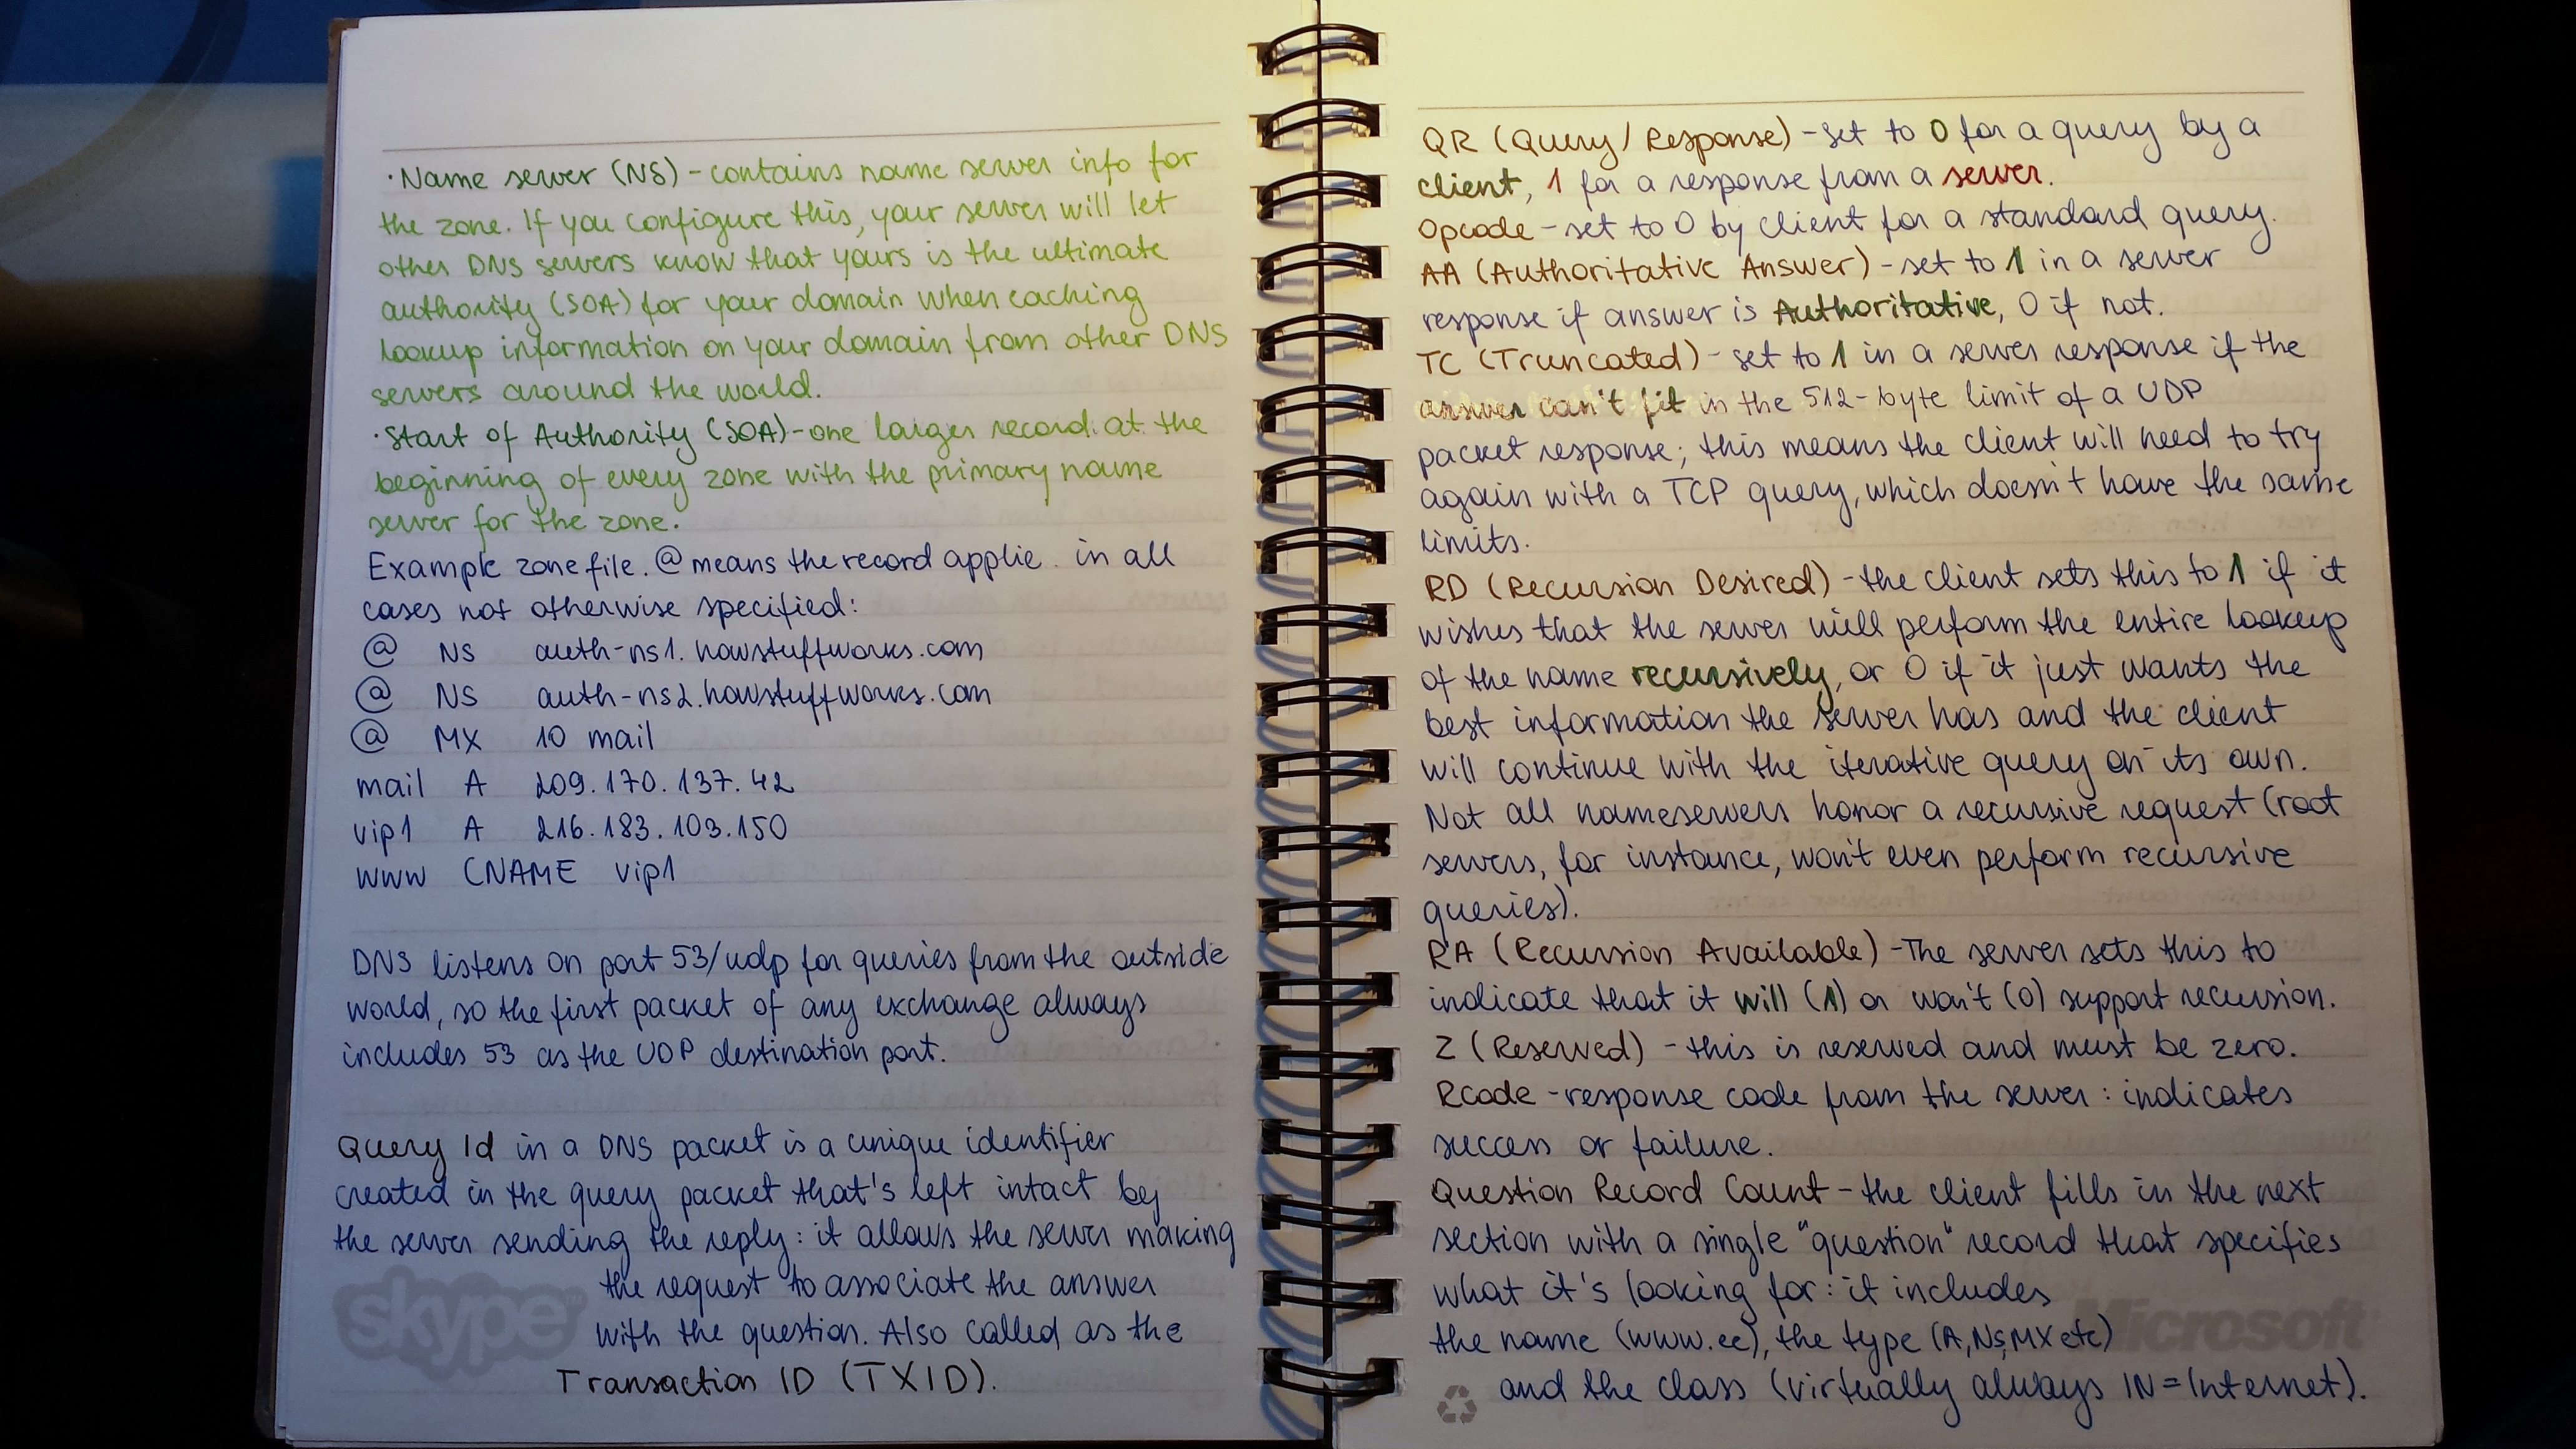 ·Name server (NS) - contains name server info for
the zone. If you configure this, your server will let
other DNS servers know that yours is the ultimate
authority (SOA) for your domain when caching
lookup information on your domain from other DNS
servers around the world.
·Start of Authority (SOA) - one larger record at the
beginning of every zone with the primary name
server for the zone.
Example zone file. @ means the record applie in all
cases not otherwise specified:
@ NS auth-ns1.howstuffworks.com
@ NS auth-ns2.howstuffworks.com
@ MX 10 mail
mail A 209.170.137.42
vip1 A 216.183.103.150
www CNAME vip1
DNS listens on port 53/udp for queries from the outside
world, so the first packet of any exchange always
includes 53 as the UDP destination port.
Query Id in a DNS packet is a unique identifier
created in the query packet that's left intact by
the server sending the reply: it allows the server making
the request to associate the answer
with the question. Also called as the
Transaction ID (TXID).
skype
QR (Query / Response) - set to 0 for a query by a
client, 1 for a response from a server.
Opcode - set to 0 by client for a standard query.
AA (Authoritative Answer) - set to 1 in a server
response if answer is Authoritative, 0 if not.
TC (Truncated) - set to 1 in a server response if the
answer can't fit in the 512-byte limit of a UDP
packet response; this means the client will need to try
again with a TCP query, which doesn't have the same
limits.
RD (Recursion Desired) - the client sets this to 1 if it
wishes that the server will perform the entire lookup
of the name recursively, or 0 if it just wants the
best information the server has and the client
will continue with the iterative query on its own.
Not all nameservers honor a recursive request (root
servers, for instance, won't even perform recursive
queries).
RA (Recursion Available) - The server sets this to
indicate that it will (1) or won't (0) support recursion.
Z (Reserved) - this is reserved and must be zero.
Rcode - response code from the server: indicates
success or failure.
Question Record Count - the client fills in the next
section with a single "question" record that specifies
what it's looking for: it includes
the name (www.ee), the type (A, NS, MX etc)
and the class (virtually always IN = Internet).
Microsoft